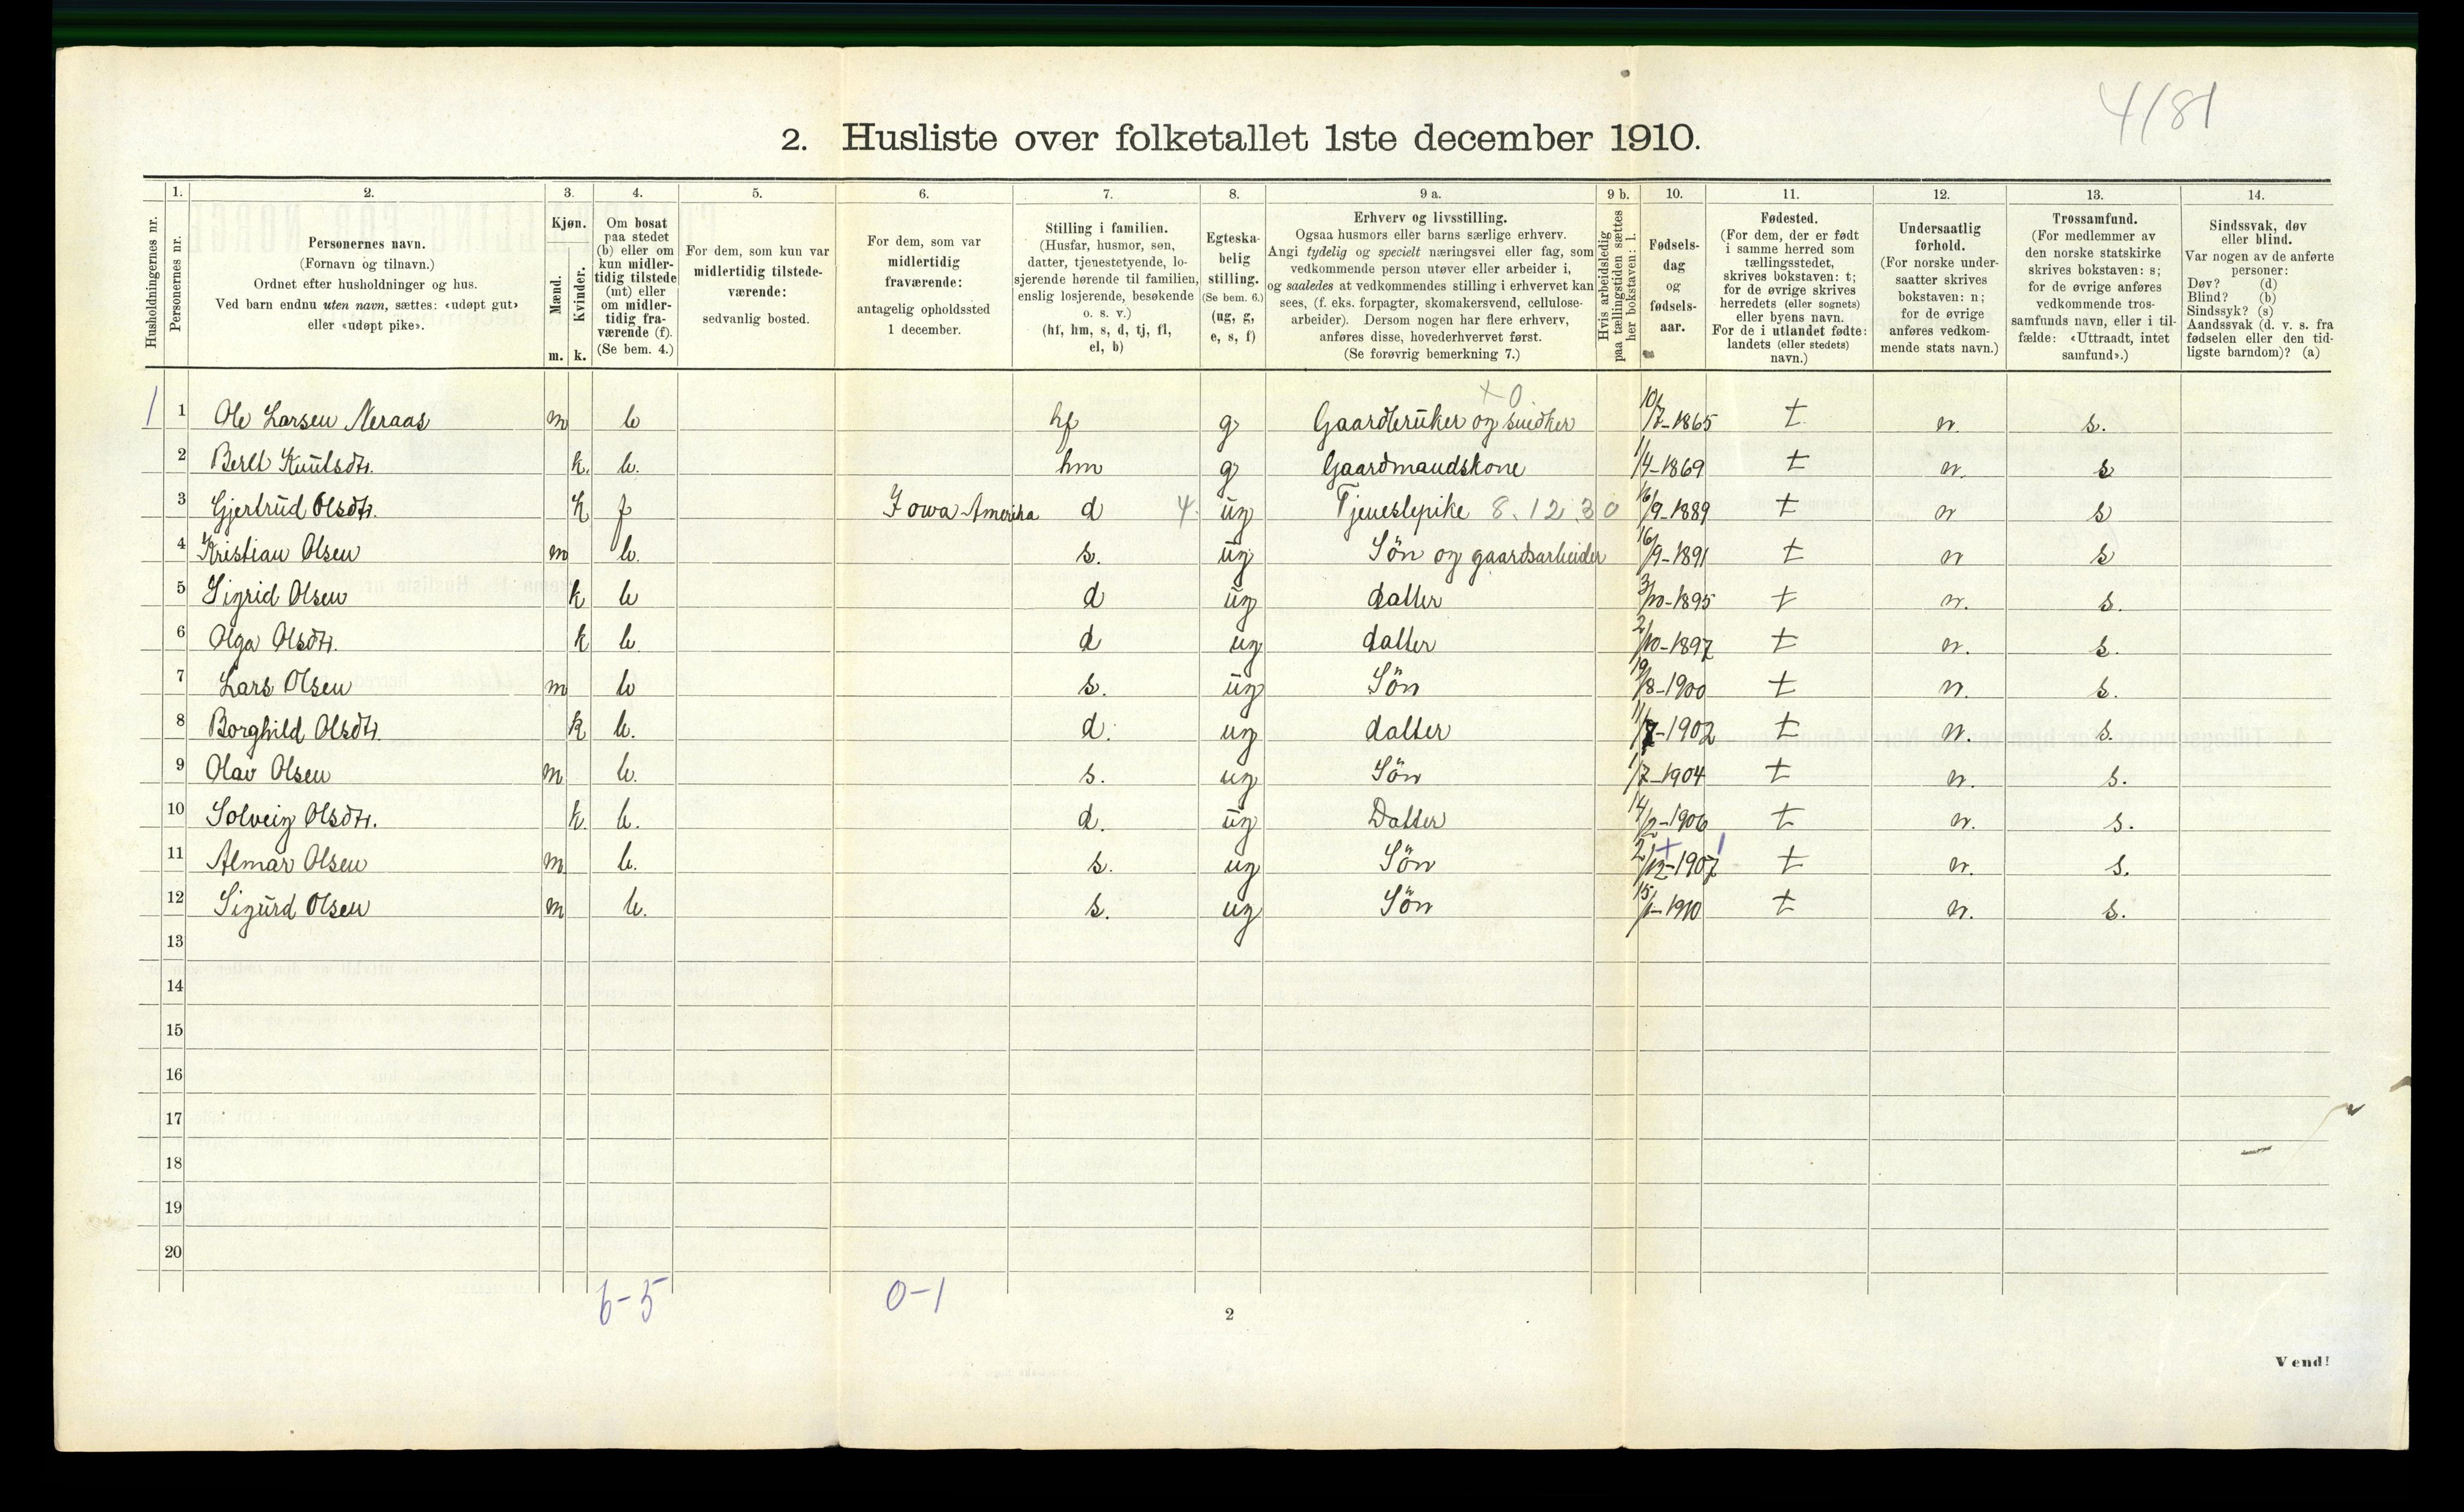 4/81
2. Husliste over folketallet 1ste december 1910.
Husholdningernes nr.
1.
Personernes nr.
2.
Personernes navn.
(Fornavn og tilnavn.)
Ordnet efter husholdninger og hus.
Ved barn endnu uten navn, sættes: «udøpt gut»
eller «udøpt pike».
3.
Kjøn.
Mænd.
Kvinder.
m. k.
4.
Om bosat
paa stedet
(b) eller om
kun midler-
tidig tilstede
(mt) eller
om midler-
tidig fra-
værende (f).
(Se bem. 4.)
5.
For dem, som kun var
midlertidig tilstede-
værende:
sedvanlig bosted.
6.
For dem, som var
midlertidig
fraværende:
antagelig opholdssted
1 december.
7.
Stilling i familien.
(Husfar, husmor, søn,
datter, tjenestetyende, lo-
sjerende hørende til familien,
enslig losjerende, besøkende
o. s. v.)
(hf, hm, s, d, tj, fl,
el, b)
8.
Egteska-
belig
stilling.
(Se bem. 6.)
(ug, g,
e, s, f)
9 a.
Erhverv og livsstilling.
Ogsaa husmors eller barns særlige erhverv.
Angi tydelig og specielt næringsvei eller fag, som
vedkommende person utøver eller arbeider i,
og saaledes at vedkommendes stilling i erhvervet kan
sees, (f. eks. forpagter, skomakersvend, cellulose-
arbeider). Dersom nogen har flere erhverv,
anføres disse, hovederhvervet først.
(Se forøvrig bemerkning 7.)
9 b.
Hvis arbeidsledig
paa tællingstiden sættes
her bokstaven: l.
10.
Fødsels-
dag
og
fødsels-
aar.
11.
Fødested.
(For dem, der er født
i samme herred som
tællingsstedet,
skrives bokstaven: t;
for de øvrige skrives
herredets (eller sognets)
eller byens navn.
For de i utlandet fødte:
landets (eller stedets)
navn.)
12.
Undersaatlig
forhold.
(For norske under-
saatter skrives
bokstaven: n;
for de øvrige
anføres vedkom-
mende stats navn.)
13.
Trossamfund.
(For medlemmer av
den norske statskirke
skrives bokstaven: s;
for de øvrige anføres
vedkommende tros-
samfunds navn, eller i til-
fælde: «Uttraadt, intet
samfund».)
14.
Sindssvak, døv
eller blind.
Var nogen av de anførte
personer:
Døv? (d)
Blind? (b)
Sindssyk? (s)
Aandssvak (d. v. s. fra
fødselen eller den tid-
ligste barndom)? (a)
x 0
1 1 Ole Larsen Neraas m b hf g Gaardbruker og snedker 10/7-1865 t n. s.
2 Berit Knutsdtr. k. b. hm g Gaardmandskone 1/4-1869 t n. s
3 Gjertrud Olsdtr. k f Iowa Amerika d 4 ug Tjenestepike 8.12.30 16/9-1889 t n s
4 Kristian Olsen m b. s. ug Sön og gaardsarbeider 16/9-1891 t n s
5 Sigrid Olsen k b d ug datter 3/10-1895 t n. s.
6 Olga Olsdtr. k b d ug datter 2/10-1897 t n. s.
7 Lars Olsen m b s. ug Sön 19/8-1900 t n. s.
8 Borghild Olsdtr. k b. d. ug datter 11/7-1902 t n. s.
9 Olav Olsen m b. s. ug Sön 1/7-1904 t n. s.
10 Solveig Olsdtr. k. b. d. ug Datter 14/2-1906 t n. s.
11 Almar Olsen m b. s. ug Sön 2/12-1907 t n. s.
12 Sigurd Olsen m b. s. ug Sön 15/1-1910 t n. s.
13
14
15
16
17
18
19
20
6-5 0-1
2
Vend!